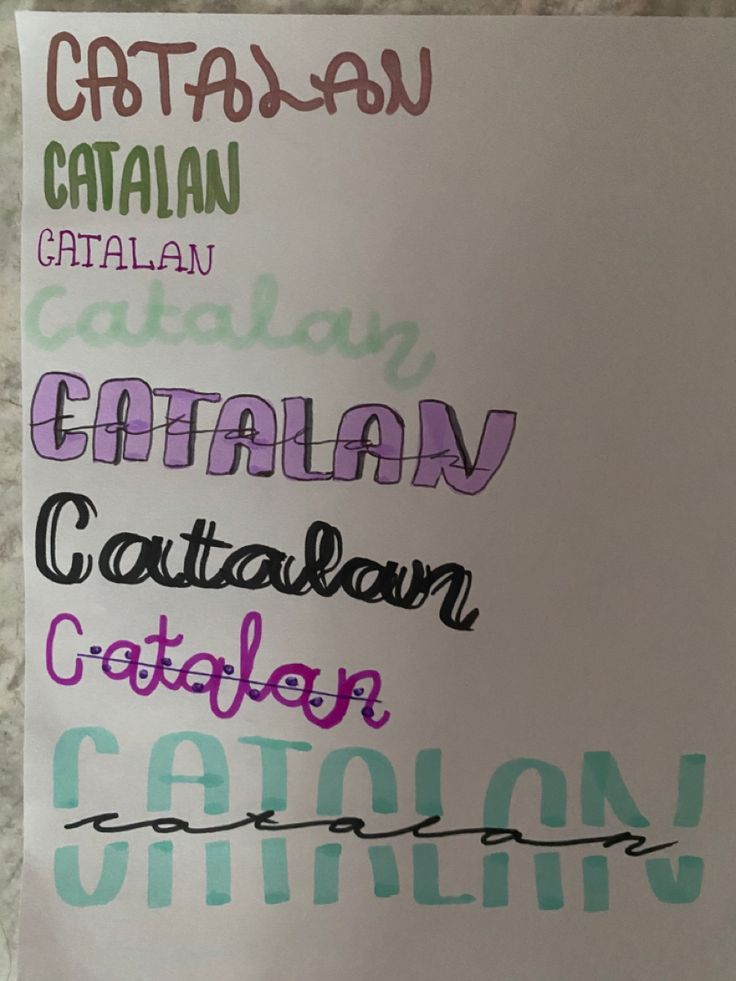 CATALAN
CATALAN
CATALAN
catalan
CATALAN
catalan
Catalan
Catalan
CATALAN
catalan